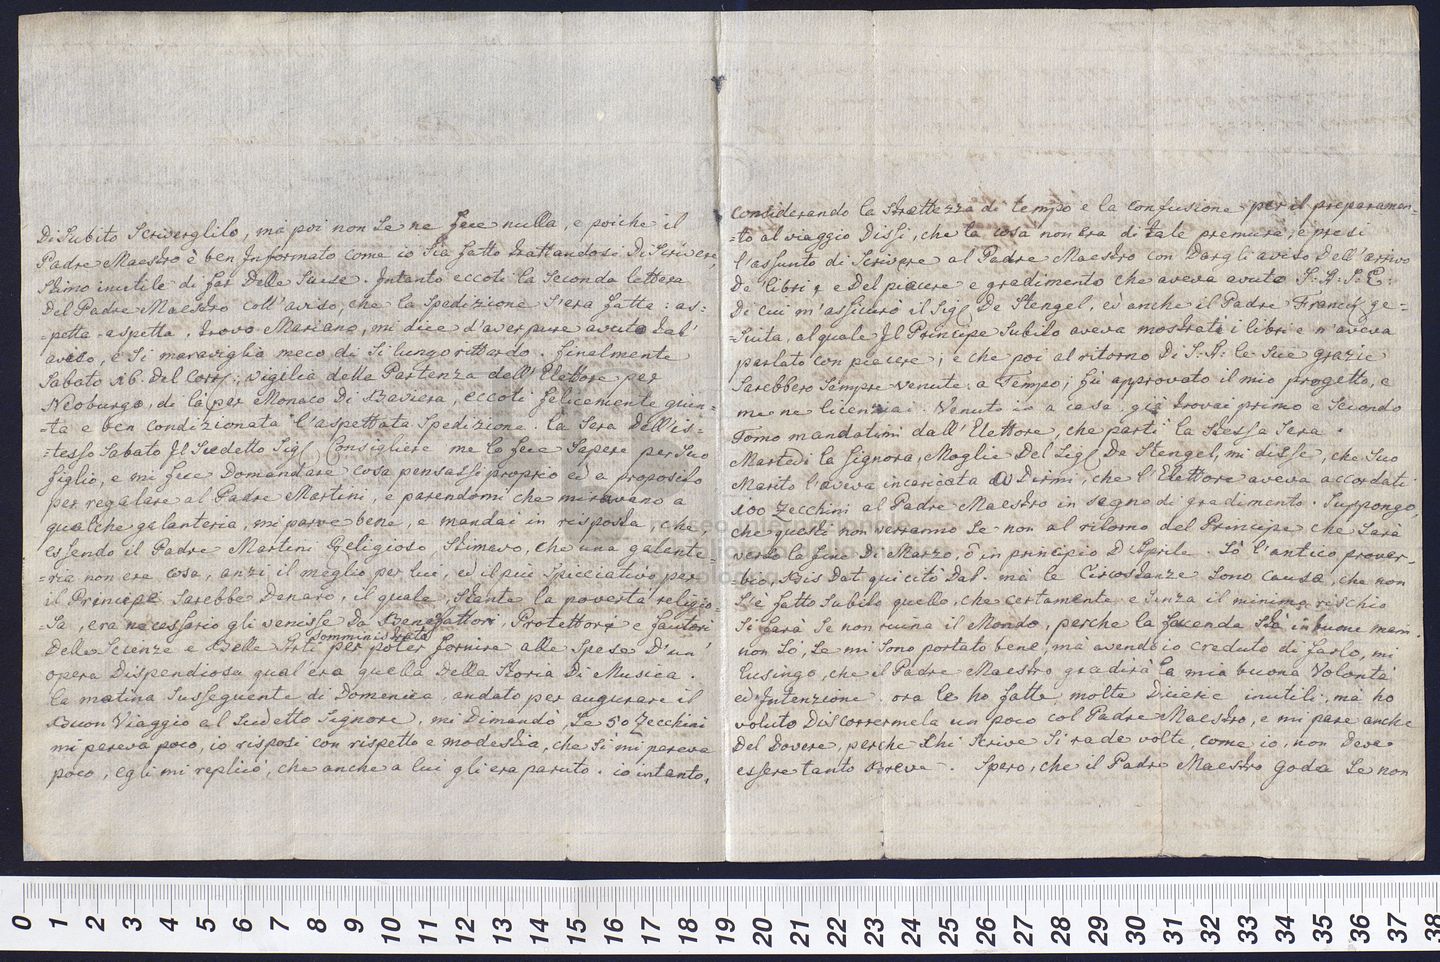 Di Subito Scriverglilo, mà poi non Se ne fece nulla, e poiche il
Padre Maestro è ben Informato come io Sia fatto trattandosi Di Scrivere,
Stimo inutile di far Delle Scuse. Intanto eccoti la Seconda lettera
Del Padre Maestro coll'aviso, che la Spedizione S'era fatta: as-
-petta - aspetta. trovo Mariano, mi dice d'aver pure avuto tal'
aviso, e Si maraviglia meco di Si lungo rittardo. finalmente
Sabato 16. Del Corr:, vigilia della Partenza dell'Elettore per
Neoburgo, di là per Monaco Di Baviera, eccoti felicemente giun-
-ta e ben condizionata l'aspettata Spedizione. la Sera Dell'is-
-tesso Sabato Il Sudetto Sig Consigliere me lo fece Sapere per Suo
figlio, e mi fece Domandare cosa pensassi proprio ed a proposito
per regalare al Padre Martini, e parendomi che miravano a
qualche galanteria, mi parve bene, e mandai in risposta, che,
essendo il Padre Martini Religioso, Stimavo, che una galante-
-ria non era cosa, anzi il meglio per lui, ed il più Spicciativo per
il Principe Sarebbe Denaro, il quale, Stante la povertà religio-
-Sa, era necessario gli venisse da Benefattori, Protettori e fautori
Delle Scienze e Belle Arti Somministrato per poter fornire alle Spese D'un'
opera Dispendiosa qual'era quella Della Storia Di Musica.
la matina Susseguente di Domenica, andato per augurare il
Buon Viaggio al Sudetto Signore, mi Dimandò, Se 50 Zecchini
mi pareva poco, io risposi con rispetto e modestia, che Si mi pareva
poco, egli mi replicò, che anche a lui gli era paruto. io intanto,
Considerando la Strettezza di tempo e la confusione per il preparamen-
-to al viaggio Dissi, che la cosa non era di tale premura, e presi
l'assunto di Scrivere al Padre Maestro con Dargli aviso Dell'arrivo
De'libri, e Del piacere e gradimento che aveva avuto S. A. S. E:
Di cui m'assicurò il Sig De Stengel, ed anche il Padre Franck ge-
-Suita, al quale Il Principe Subito aveva mostrati i libri e n'aveva
parlato con piacere; e che poi al ritorno Di S: A: le Sue grazie
Sarebbero Sempre venute a Tempo; fù approvato il mio progetto, e
me ne licenziai. Venuto io a casa, già trovai primo e Secondo
Tomo mandatimi dall'Elettore, che partì la Stessa Sera.
Martedì la Signora, Moglie Del Sig De Stengel, mi disse, che Suo
Marito l'aveva incaricata a Dirmi, che l'Elettore aveva accordati
100 Zecchini al Padre Maestro in Segno di gradimento. Suppongo,
che questi non verranno Se non al ritorno del Principe che Sarà
verso la fine Di Marzo, ò in principio D'Aprile. Sò l'antico prover-
-bio, Bis Dat qui citò Dat. mà le Circostanze Sono causa, che non
S'è fatto Subito quello, che certamente e Senza il minimo rischio
Si farà Se non ruina il Mondo, perche la facenda Stà in buone mani.
non Sò, Se mi Sono portato bene, mà avendo io creduto di farlo, mi
lusingo, che il Padre Maestro gradirà la mia buona Volontà
ed Intenzione. ora le hò fatto molte Dicerie inutili, mà hò
voluto Discorrermela un poco col Padre Maestro, e mi pare anche
Del Dovere, perche Chi Scrive Si rade volte, come io, non Deve
essere tanto Breve. Spero, che il Padre Maestro goda Se non